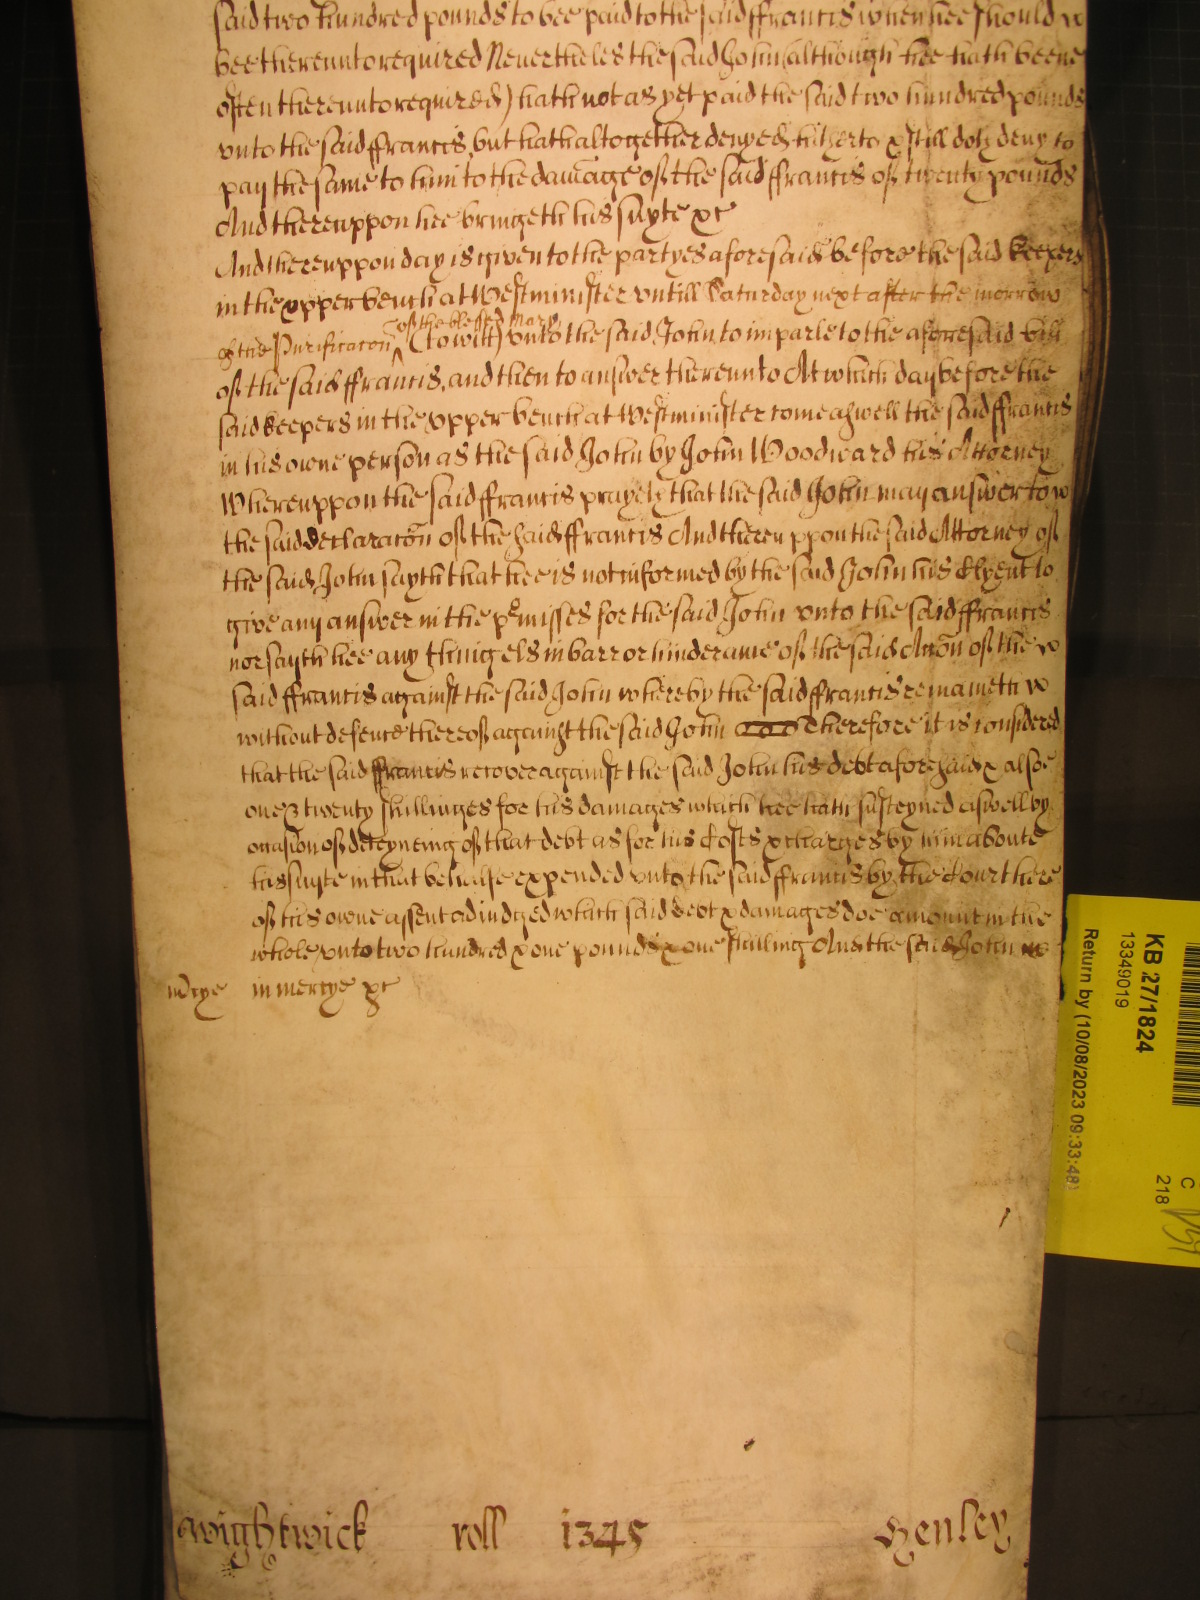 said two hundred pounds to bee paid to the said ffrancis when hee should
bee thereunto required Neverthelesse the said John (although hee hath beene
often thereunto required) hath not as yet paid the said two hundred pounds
unto the said ffrancis, but hath altogether denyed hitherto & still doth deny to
pay the same to him to the damage of the said ffrancis of twenty pounds
And thereuppon hee bringeth his suyte &c
And thereuppon day is given to the partyes aforesaid before the said keepers
in the upper bench at Westminister untill Saturday next after the morrow
of the blessed Mary
of the Purificacon (to witt) unto the said John to imparle to the aforesaid bill
of the said ffrancis, and then to answer thereunto At which day before the
said keepers in the upper bench at Westminister come aswell the said ffrancis
in his owne person as the said John by John Woodward his Attorney
Whereuppon the said ffrancis prayeth that the said John may answer to
the said declaracon of the said ffrancis And thereuppon the said Attorney of
the said John sayth that hee is not informed by the said John his Clyent to
give any answer in the pmisses for the said John unto the said ffrancis
nor sayth hee any thinig els in barr or hinderance of the said Accon of the
said ffrancis against the said John whereby the said ffrancis remaineth
without defence thereof against the said John Therefore it is considered
that the said ffrancis recover against the said John his debt aforesaid & alsoe
one & twenty shillinges for his damages which hee hath susteyned aswell by
occasion of deteyneing of that debt as for his Costs & charges by him aboute
his suyte in that behalfe expended unto the said ffrancis by the Court here
of his owne assent adiudged which said debt & damages doe amount in the
whole unto two hundred & one pounds & one shilling And the said John
mcye in mercye &c
Wightwick roll 1345 Henley
KB 27/1824
13349019
Return by (10/08/2023 09:33:48)
C
218